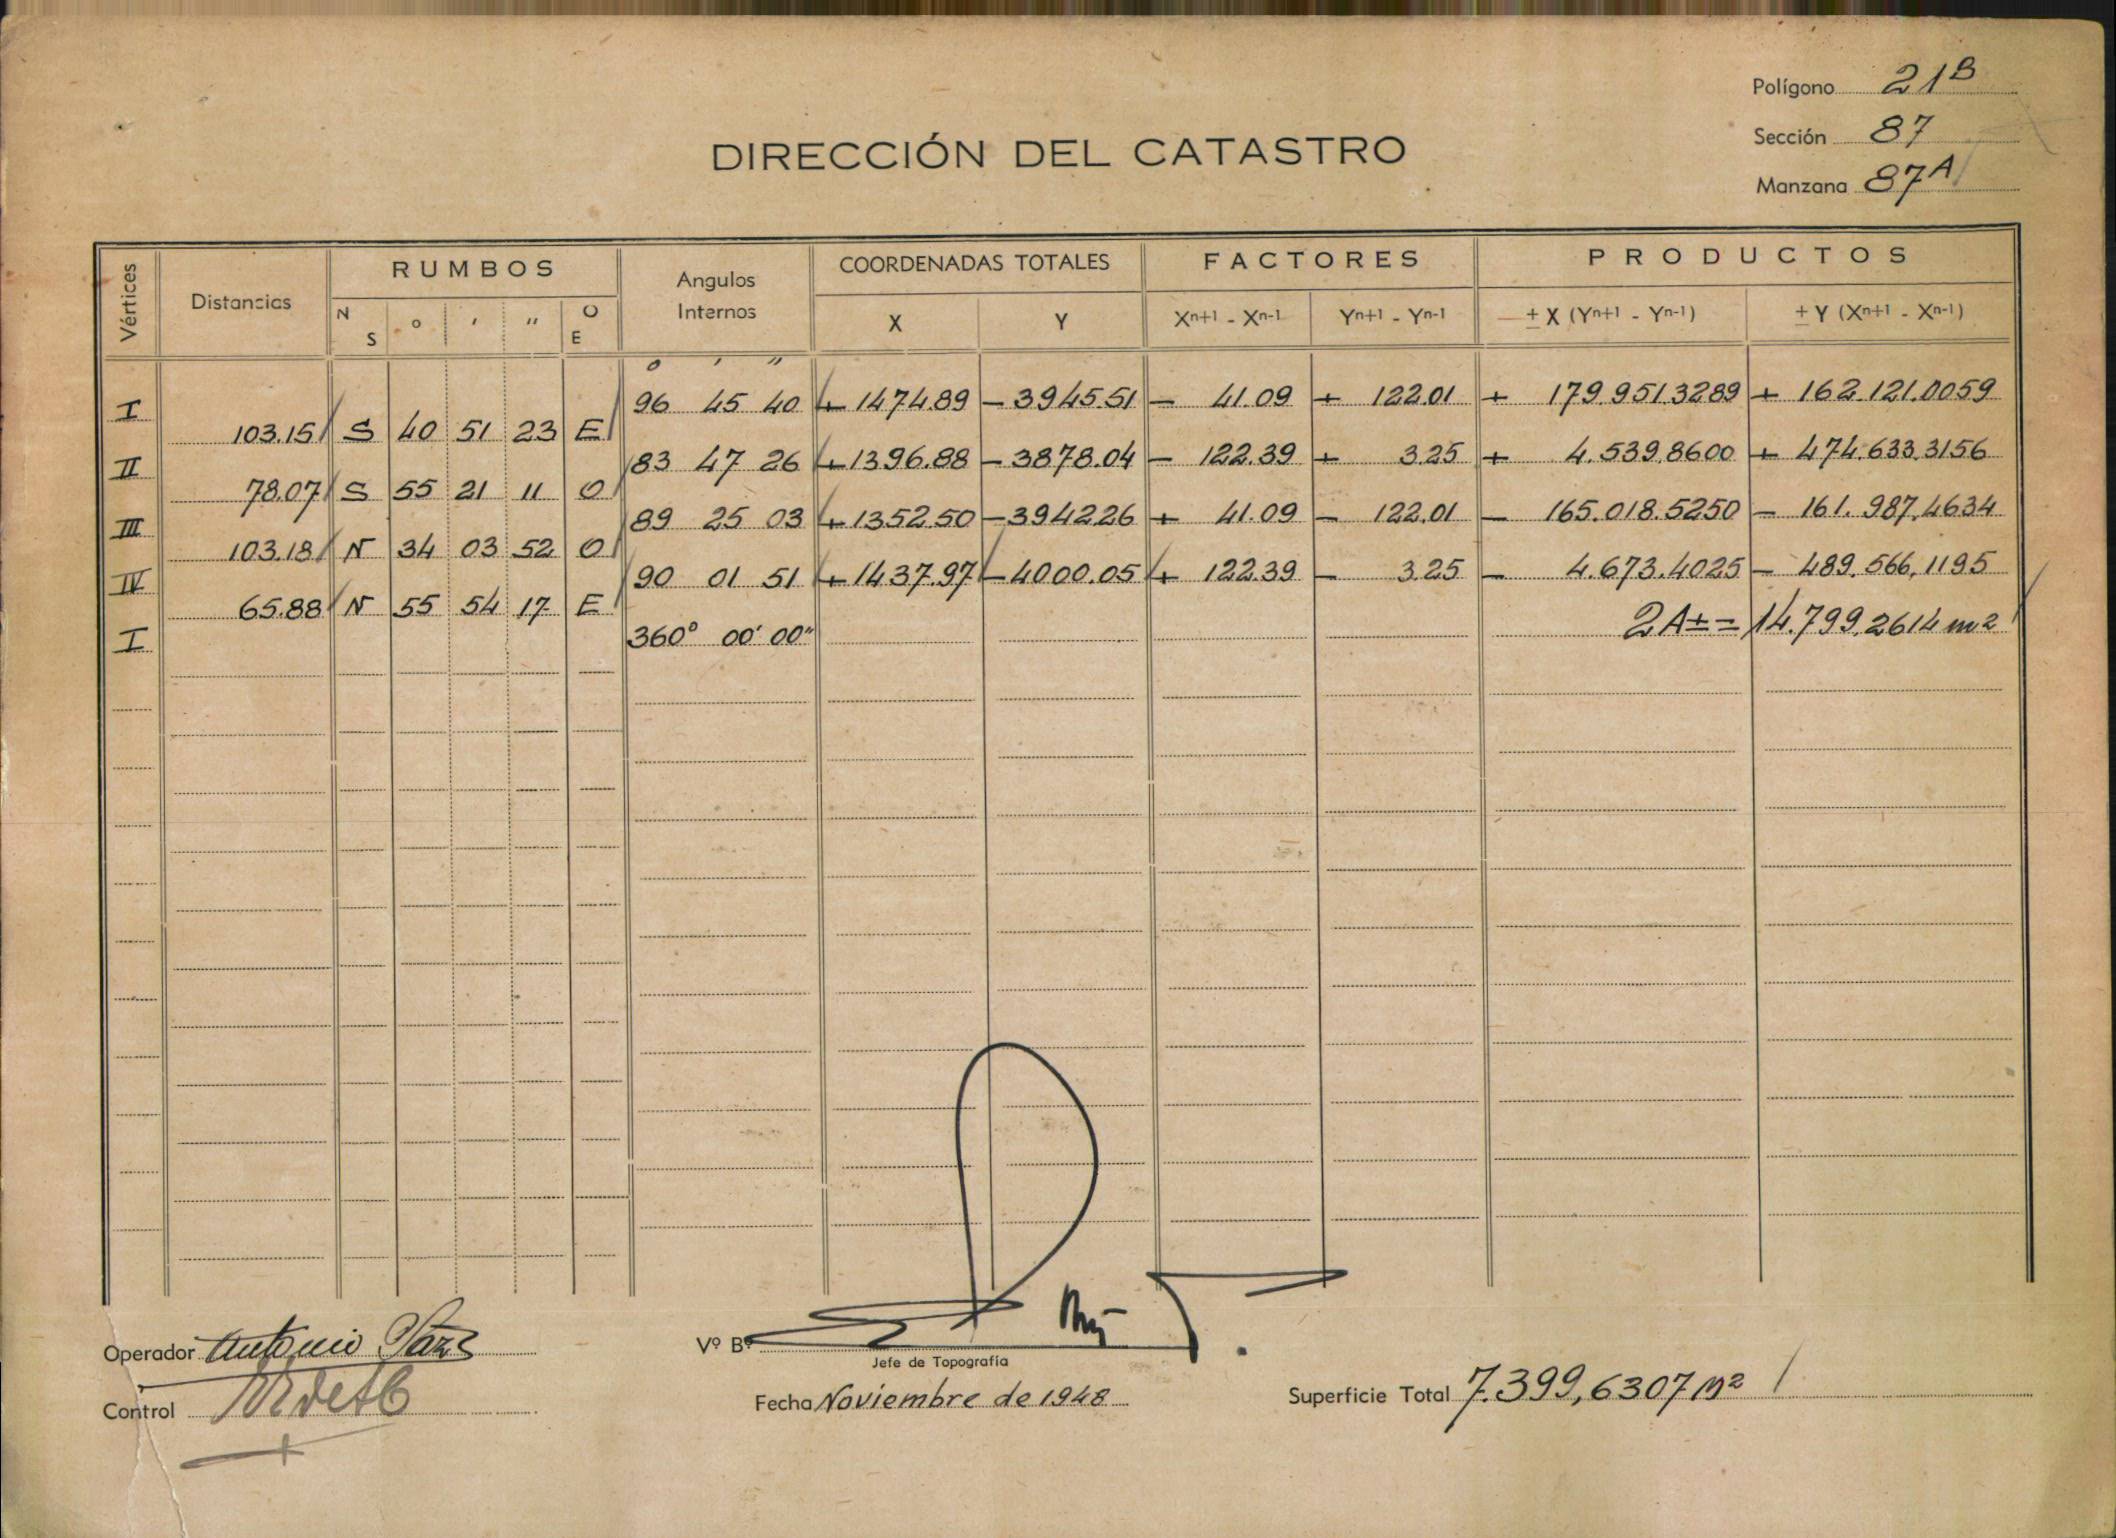 Polígono 21B
Sección 87
Manzana 87A
DIRECCIÓN DEL CATASTRO
Vértices Distancias RUMBOS Angulos Internos COORDENADAS TOTALES FACTORES PRODUCTOS
N S ° ' " O E X Y Xn+1 - Xn-1 Yn+1 - Yn-1 ± X (Yn+1 - Yn-1) ± Y (Xn+1 - Xn-1)
° ' "
I 96 45 40 + 1474.89 - 3945.51 - 41.09 + 122.01 + 179.951.3289 + 162.121.0059
103.15 S 40 51 23 E
II 83 47 26 + 1396.88 - 3878.04 - 122.39 + 3.25 + 4.539.8600 + 474.633.3156
78.07 S 55 21 11 O
III 89 25 03 + 1352.50 - 3942.26 + 41.09 - 122.01 - 165.018.5250 - 161.987.4634
103.18 N 34 03 52 O
IV 90 01 51 + 1437.97 - 4000.05 + 122.39 - 3.25 - 4.673.4025 - 489.566.1195
65.88 N 55 54 17 E
I 360° 00' 00" 2A± = 14.799.2614 m2
Operador Antonio
Vº Bº
Jefe de Topografía
Control
Fecha Noviembre de 1948
Superficie Total 7.399,6307 m2